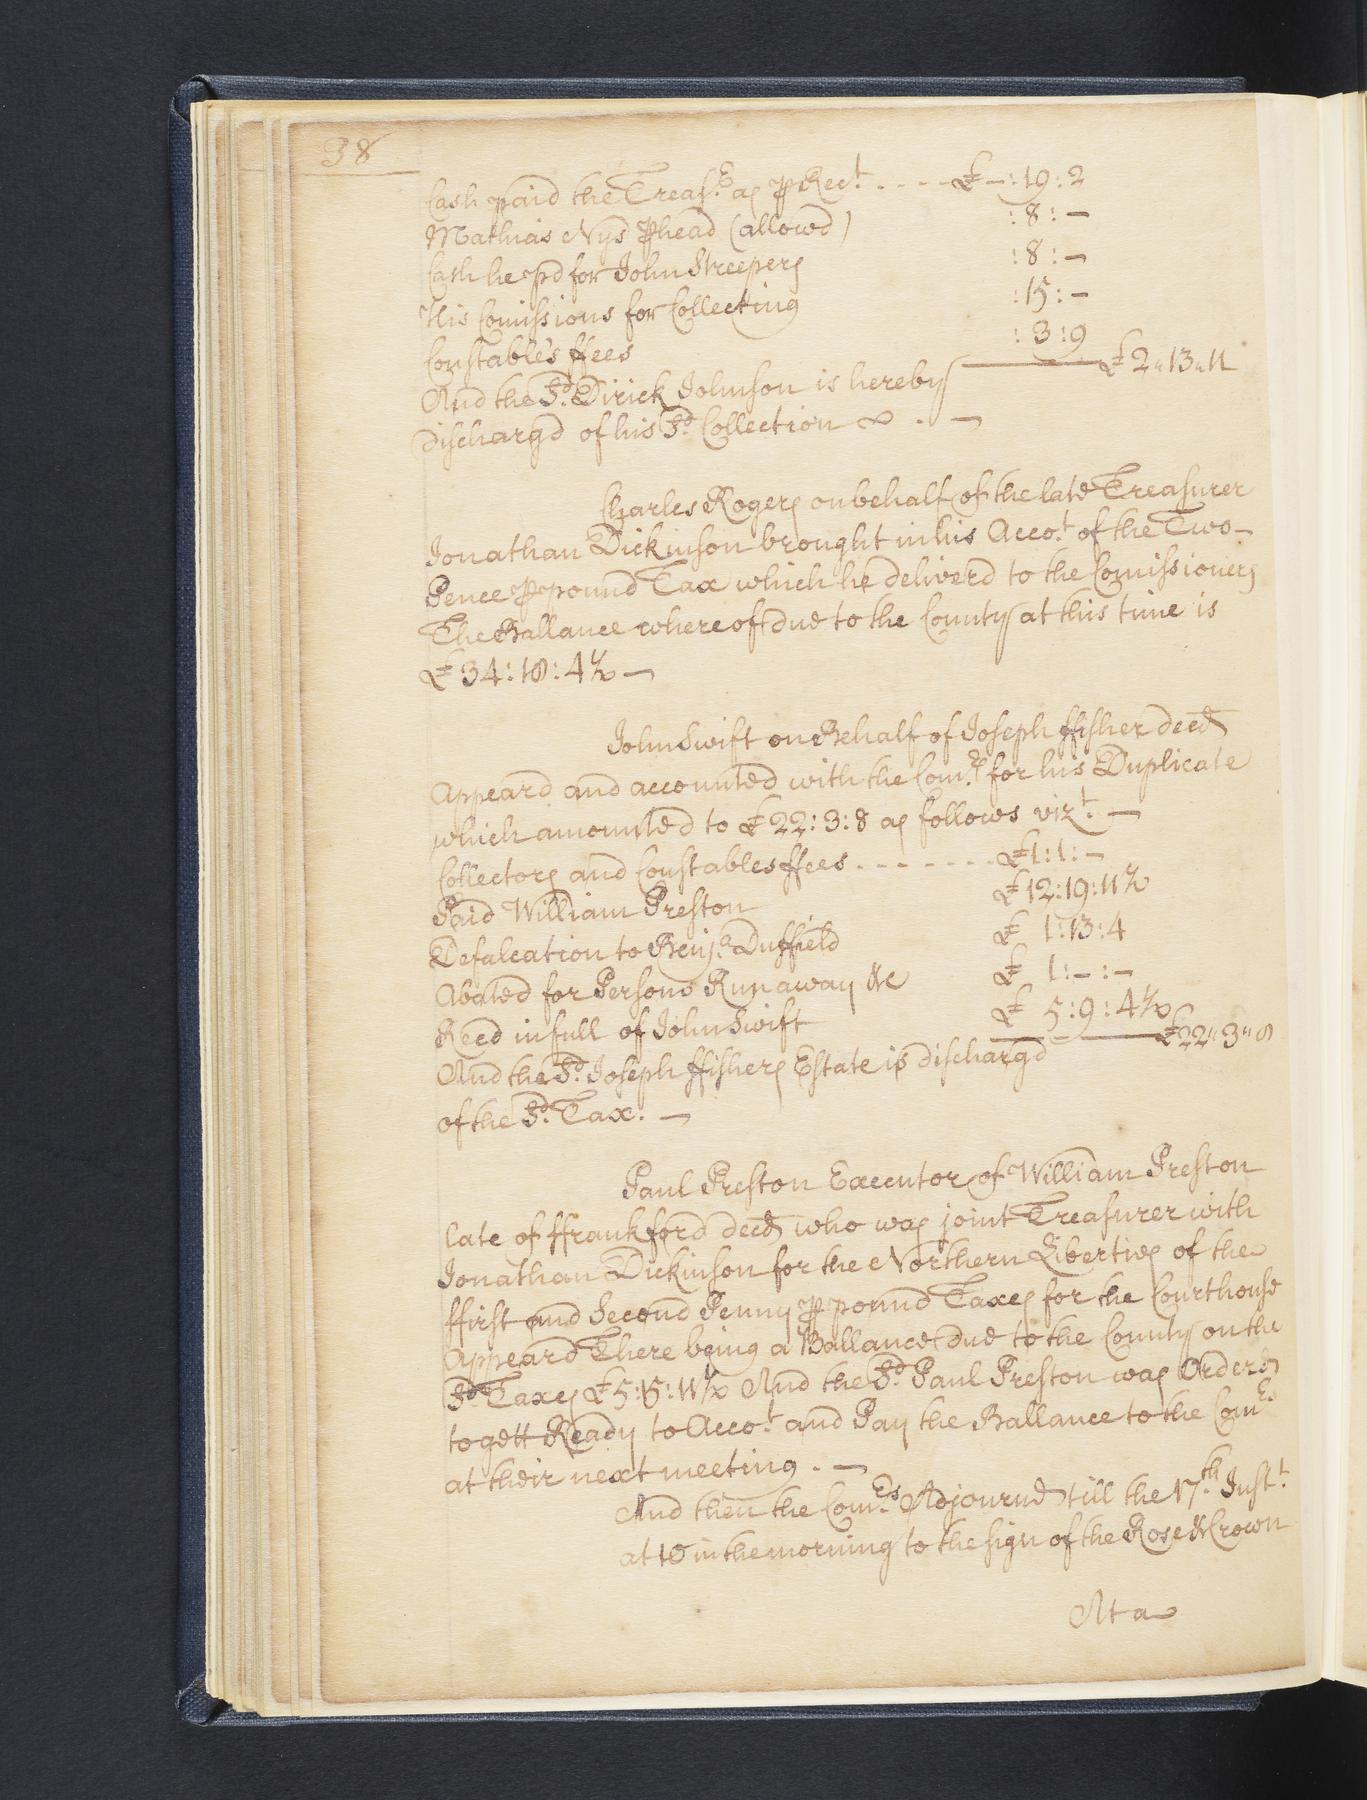 38
Cash paid the Treasr. as ꝑ Rect. . - - - - £ —: 19 : 2
Mathias Nijs ꝑ head (allowd) : 8 : —
Cash he pd for John Streepers : 8 : —
His Comissions for Collecting : 15 : —
Constable's ffees : 3 : 9
And the Sd. Dirick Johnson is hereby £ 2 " 13 " 11
Dischargd of his Sd. Collection
Charles Rogers on behalf of the late Treasurer
Jonathan Dickinson brought in his Accot. of the Two-
Pence ꝑ pound Tax which he deliverd to the Comissioners
The Ballance whereof due to the County at this time is
£ 34 : 18 : 4½ —
John Swift on Behalf of Joseph ffisher decd
Appeard and accounted with the Comrs. for his Duplicate
which amounted to £ 22 : 3 : 8 as follows vizt. —
Collectors and Constables ffees . - - - - - - - £ 1 : 1 : —
Paid William Preston £ 12 : 19 : 11½
Defalcation to Benja. Duffield £ 1 : 13 : 4
Abated for Persons Runaway &c £ 1 : — : —
Recd in full of John Swift £ 5 : 9 : 4½
And the Sd. Joseph ffishers Estate is dischargd £ 22 " 3 " 8
of the Sd. Tax. —
Paul Preston Executor of William Preston
late of ffrankford decd who was joint Treasurer with
Jonathan Dickinson for the Northern Liberties of the
ffirst and Second Penny ꝑ pound Taxes for the Courthouse
Appeard There being a Ballance due to the County on the
Sd Taxes £ 5 : 15 : 11½ And the Sd. Paul Preston was Orderd
to gett Ready to Accot. and Pay the Ballance to the Comrs
at their next meeting . —
And then the Comrs. Adjournd till the 17th. Instt.
at 10 in the morning to the sign of the Rose & Crown
At a